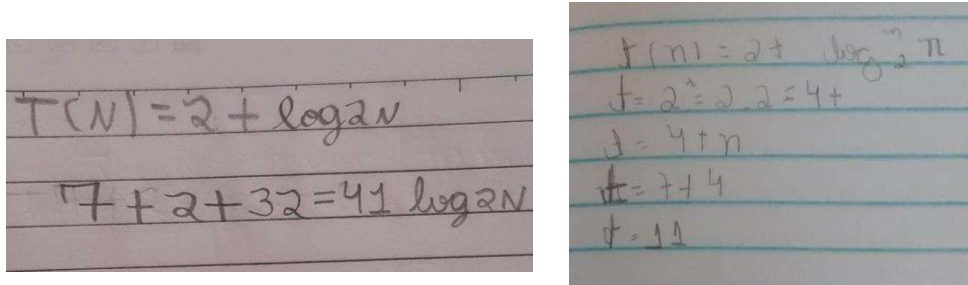 T(N) = 2 + log2N
7 + 2 + 32 = 41 log2N
t(n) = 2 + log₂ⁿ n
t = 2² = 2.2 = 4 +
t = 4 + n
t = 7 + 4
t = 11